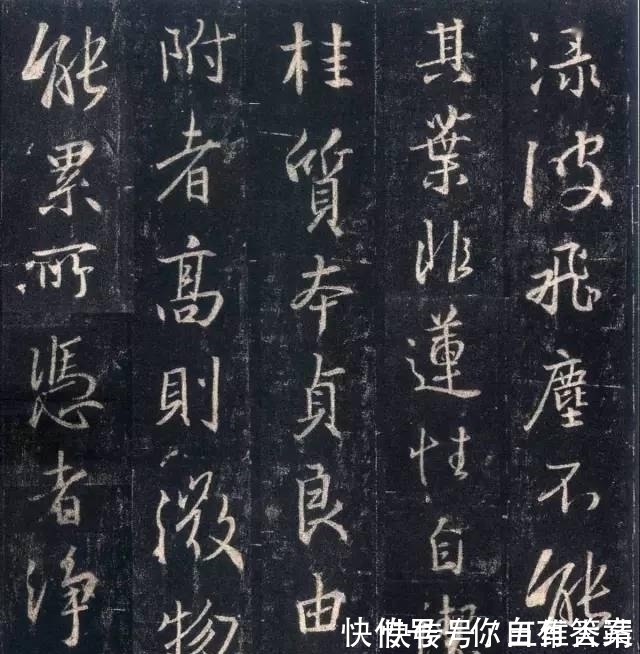 渌波飛塵不能
其葉非蓮性自潔
桂質本貞良由
附者高則微物
能累所憑者淨